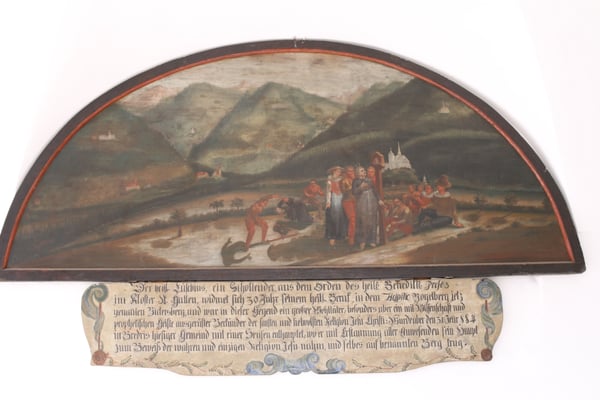 Der heil. Eusebius, ein Schottländer, aus dem Orden des heil. Benedikts
im Kloster St. Gallen, widmet sich 30 Jahr seinem heil. Beruf, in dem
und war in dieser Gegend ein großer Wohlthäter, besonders aber ein mit Wissenschaft und
prophetischem Geiste ausgerüsteter Verkünder der Religion Jesu Christi. Wurde den 31 Jenner 884
in Brederis hiesiger Gemeind mit einer Sensen enthauptet, wo er mit Erstaunung aller Anwesenden sein Haupt
zum Beweiß der wahren und einzigen Religion Jesu nahm, und selbes auf benannten Berg trug.